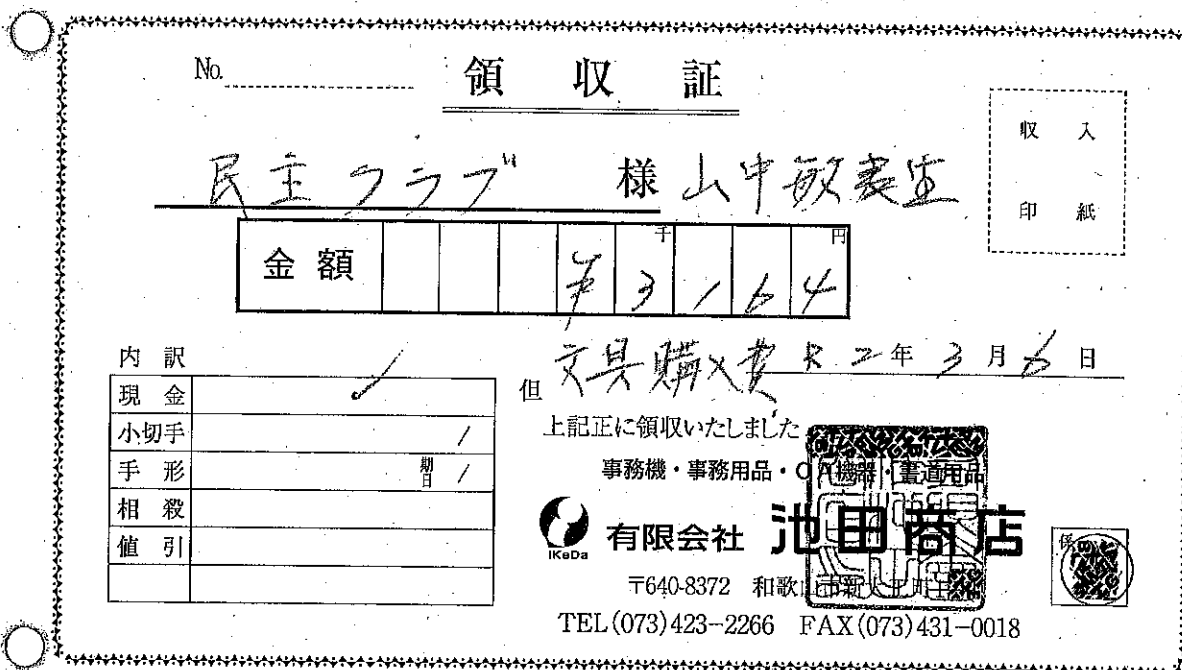 No. 領収証
収入
印紙
民主クラブ 様 山中敏
金額 千 円 ¥3164
文具購入費 R2年3月6日
内訳
現金
小切手 /
手形 期日 /
相殺
値引
但
上記正に領収いたしました
事務機・事務用品・OA機器・書道用品
IKeDa 有限会社 池田商店
〒640-8372 和歌山市新
TEL(073)423-2266 FAX(073)431-0018
係